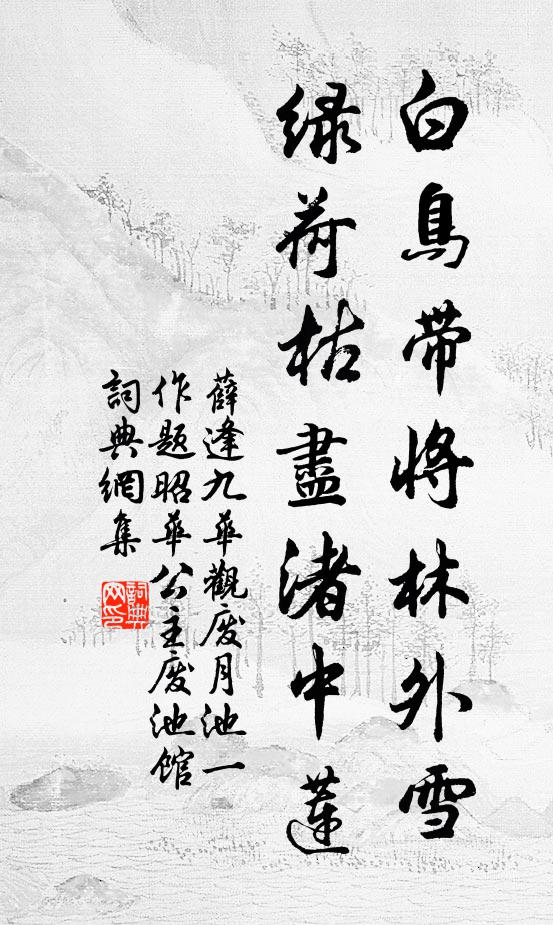 白鳥帶將林外雪
綠荷枯盡渚中蓮
薛逢九華觀废月池一
作题昭華公主废池馆
詞典網集
詞典
网印